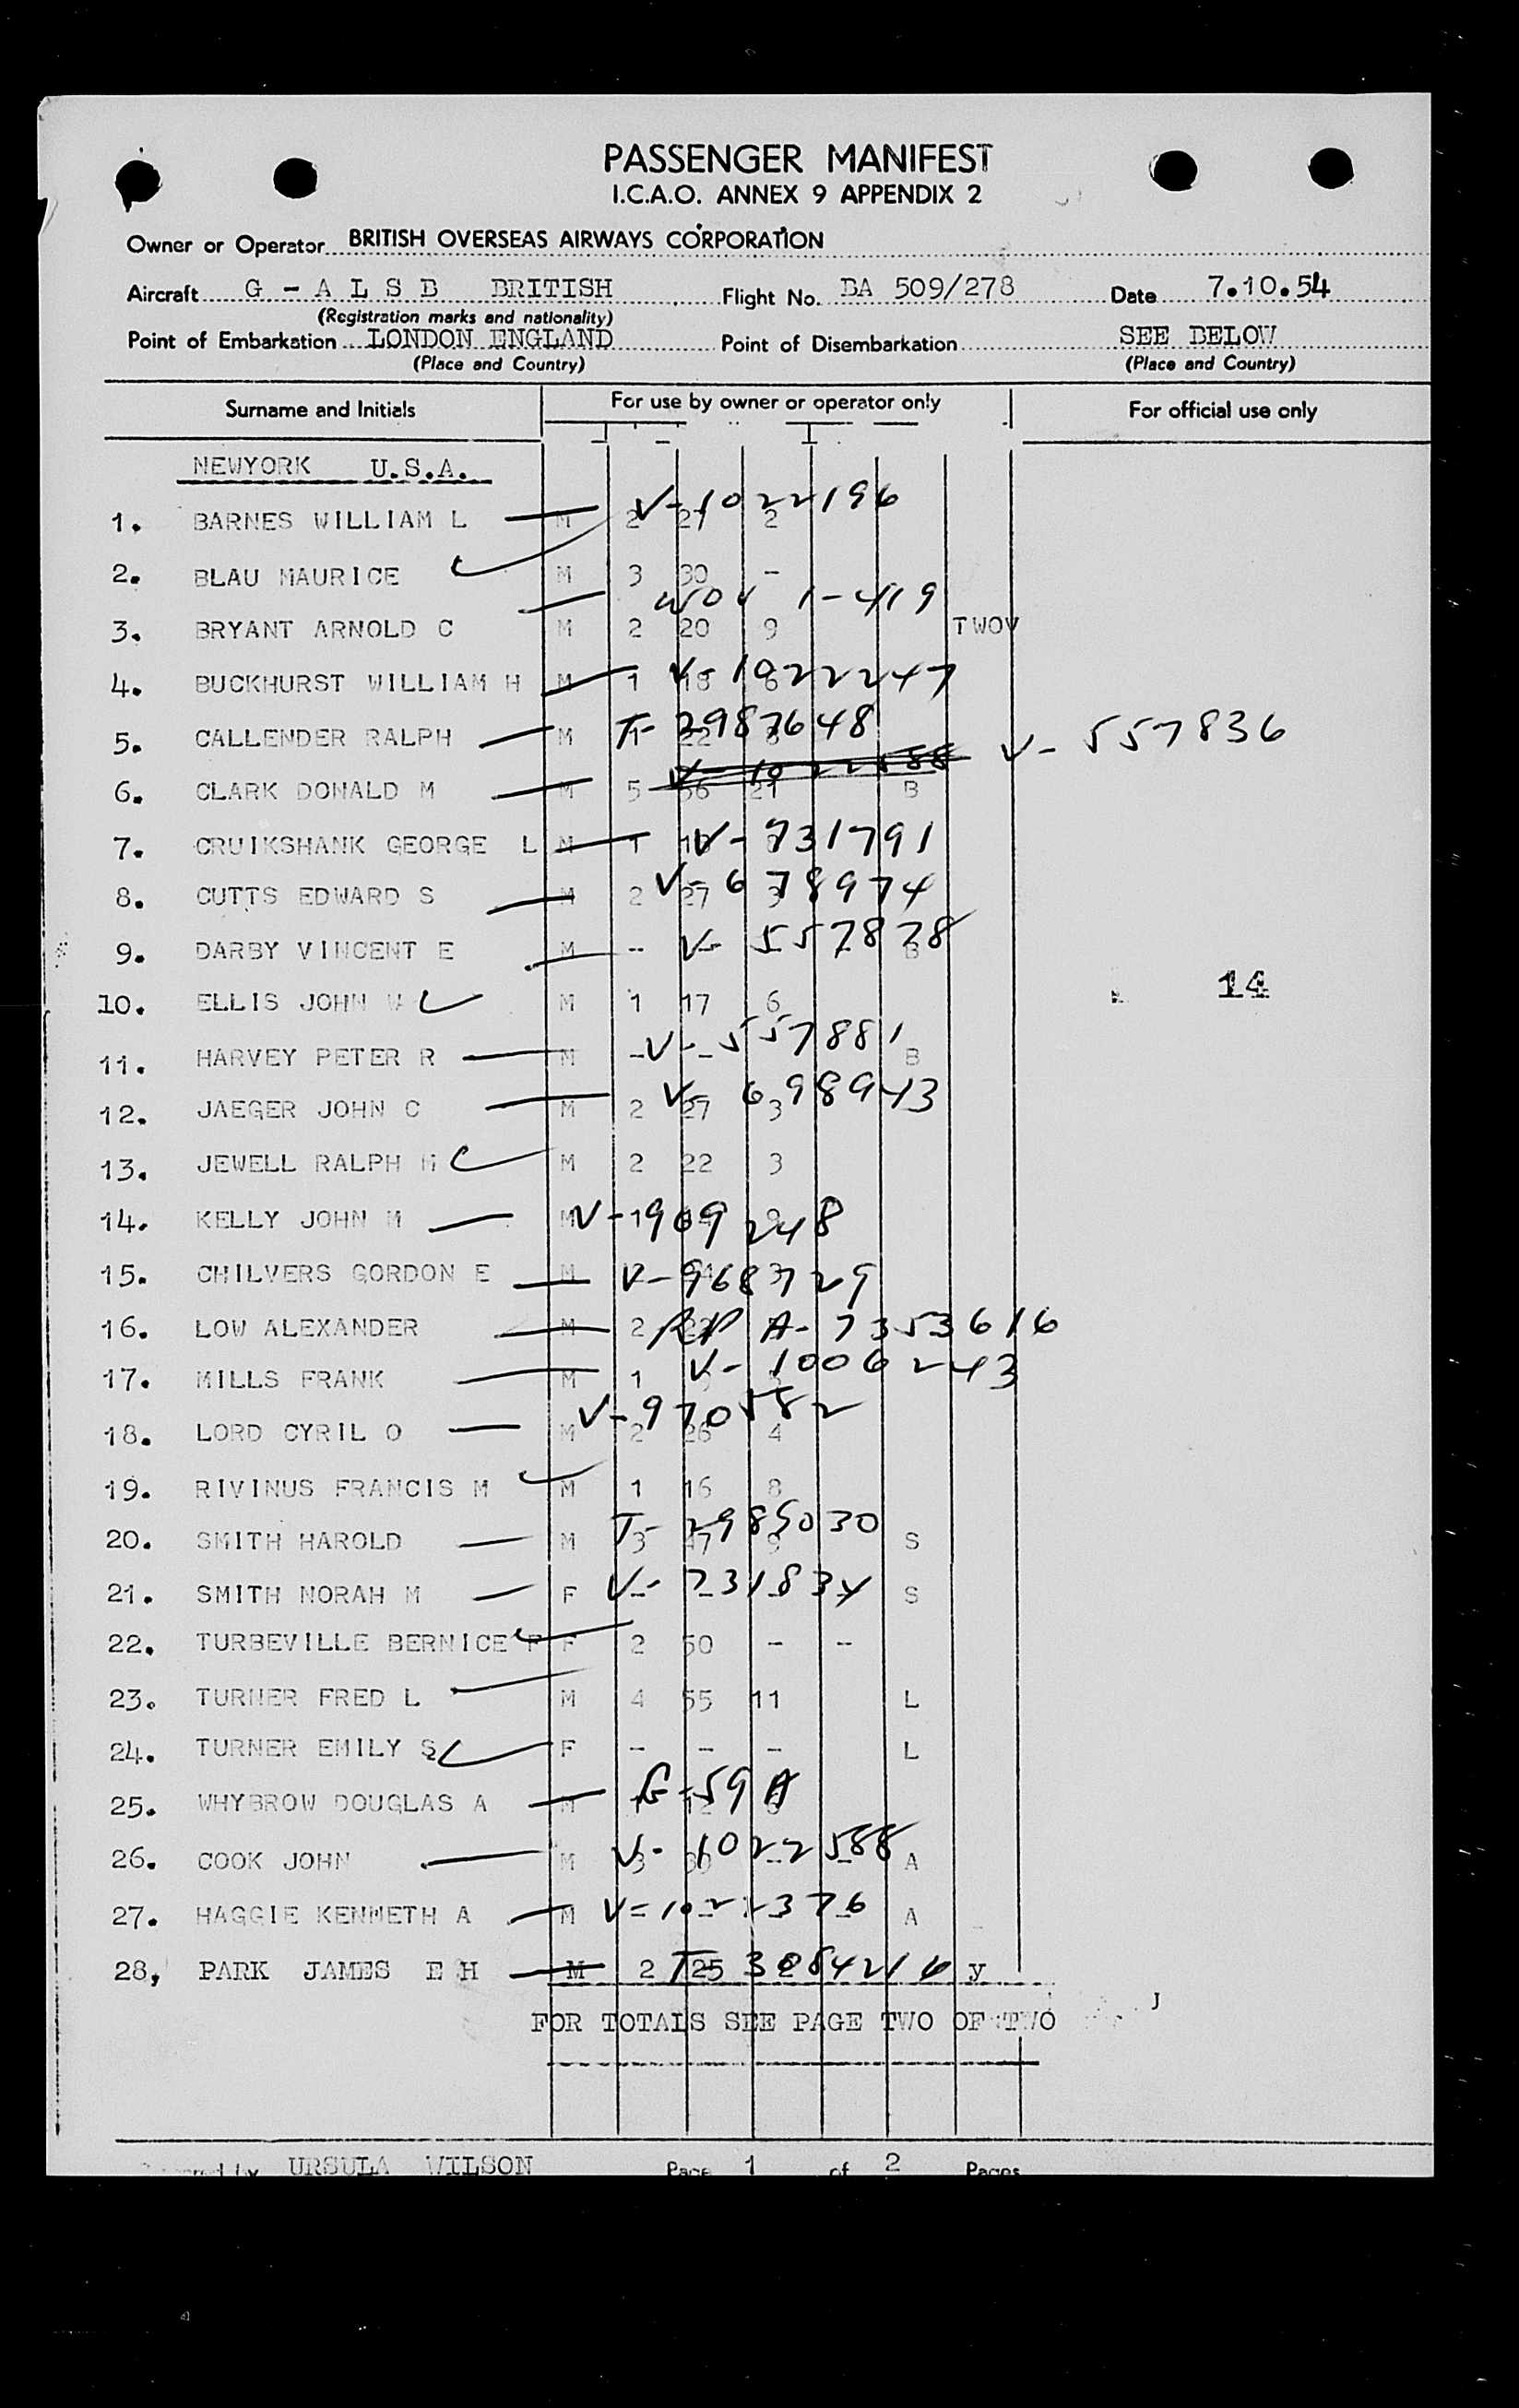 PASSENGER MANIFEST
I.C.A.O. ANNEX 9 APPENDIX 2
Owner or Operator BRITISH OVERSEAS AIRWAYS CORPORATION
Aircraft G - A L S B BRITISH Flight No. BA 509/278 Date 7.10.54
(Registration marks and nationality)
Point of Embarkation LONDON ENGLAND Point of Disembarkation SEE BELOW
(Place and Country) (Place and Country)
Surname and Initials For use by owner or operator only For official use only
NEWYORK U.S.A.
V-1022196
1. BARNES WILLIAM L M 2 27 2
2. BLAU MAURICE M 3 30 -
1-419
3. BRYANT ARNOLD C M 2 20 9 TWOV
4. BUCKHURST WILLIAM H M 1 18 6 V-1022247
5. CALLENDER RALPH M 1 22 T-2987648 V-557836
V-1022588
6. CLARK DONALD M M 5 56 21 B
7. CRUIKSHANK GEORGE L M 1 V-731791
8. CUTTS EDWARD S M 2 27 3 V-678974
9. DARBY VINCENT E M - V-557878 B
10. ELLIS JOHN W M 1 17 6 14
V-557881
11. HARVEY PETER R M - - B
12. JAEGER JOHN C M 2 27 3 V-698943
13. JEWELL RALPH M M 2 22 3
14. KELLY JOHN M M V-1969248
15. CHILVERS GORDON E M V-968729
16. LOW ALEXANDER M 2 22 A-7353616
17. MILLS FRANK M 1 V-1006243
V-970582
18. LORD CYRIL O M 2 26 4
19. RIVINUS FRANCIS M M 1 16 8
T-2985030
20. SMITH HAROLD M 3 47 9 S
21. SMITH NORAH M F - - - V-731834 S
22. TURBEVILLE BERNICE F F 2 50 - --
23. TURNER FRED L M 4 55 11 L
24. TURNER EMILY S F - - - L
25. WHYBROW DOUGLAS A M 1 12 G-59A
26. COOK JOHN M 3 V-1022588 A
27. HAGGIE KENNETH A M V-1022376 A
28, PARK JAMES E H M 2 25 T-3084216 y
FOR TOTALS SEE PAGE TWO OF TWO
J
by URSULA WILSON Page 1 of 2 Pages